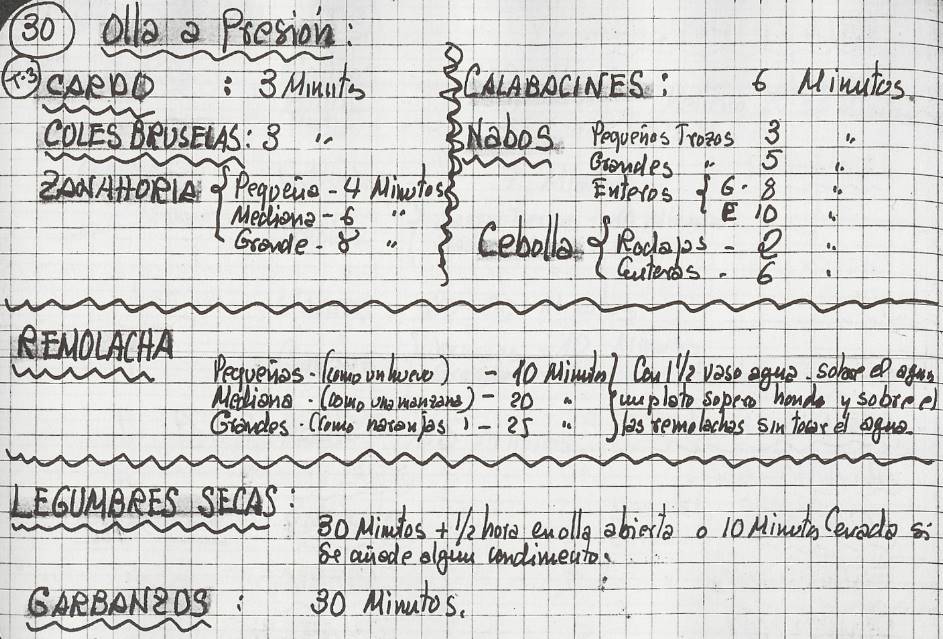 30 Olla a Presión:
T.3 CARDO : 3 Minutos
COLES BRUSELAS: 3 "
ZANAHORIA { Pequeña - 4 Minutos
Mediana - 6 "
Grande - 8 "
CALABACINES : 6 Minutos.
Nabos Pequeños Trozos 3 "
Grandes " 5 "
Enteros { G - 8 "
E 10 "
Cebolla { Rodajas - 2 "
Enteras - 6 "
REMOLACHA
Pequeñas - (como un huevo) - 10 Minutos } Con 1 1/2 vaso agua - sobre el agua
Mediana - (como una manzana) - 20 " un plato sopero hondo y sobre el
Grandes - (como naranjas ) - 25 " las remolachas sin tocar el agua.
LEGUMBRES SECAS :
30 Minutos + 1/2 hora en olla abierta o 10 Minutos Cerrada si
Se añade algun condimento.
GARBANZOS : 30 Minutos.